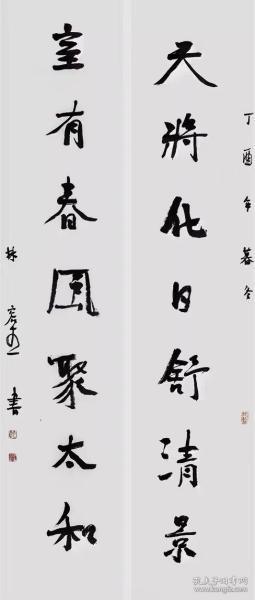 丁酉年暮冬
天将化日舒清景
室有春风聚太和
林
书
孔夫子旧书网
www.kongfz.com